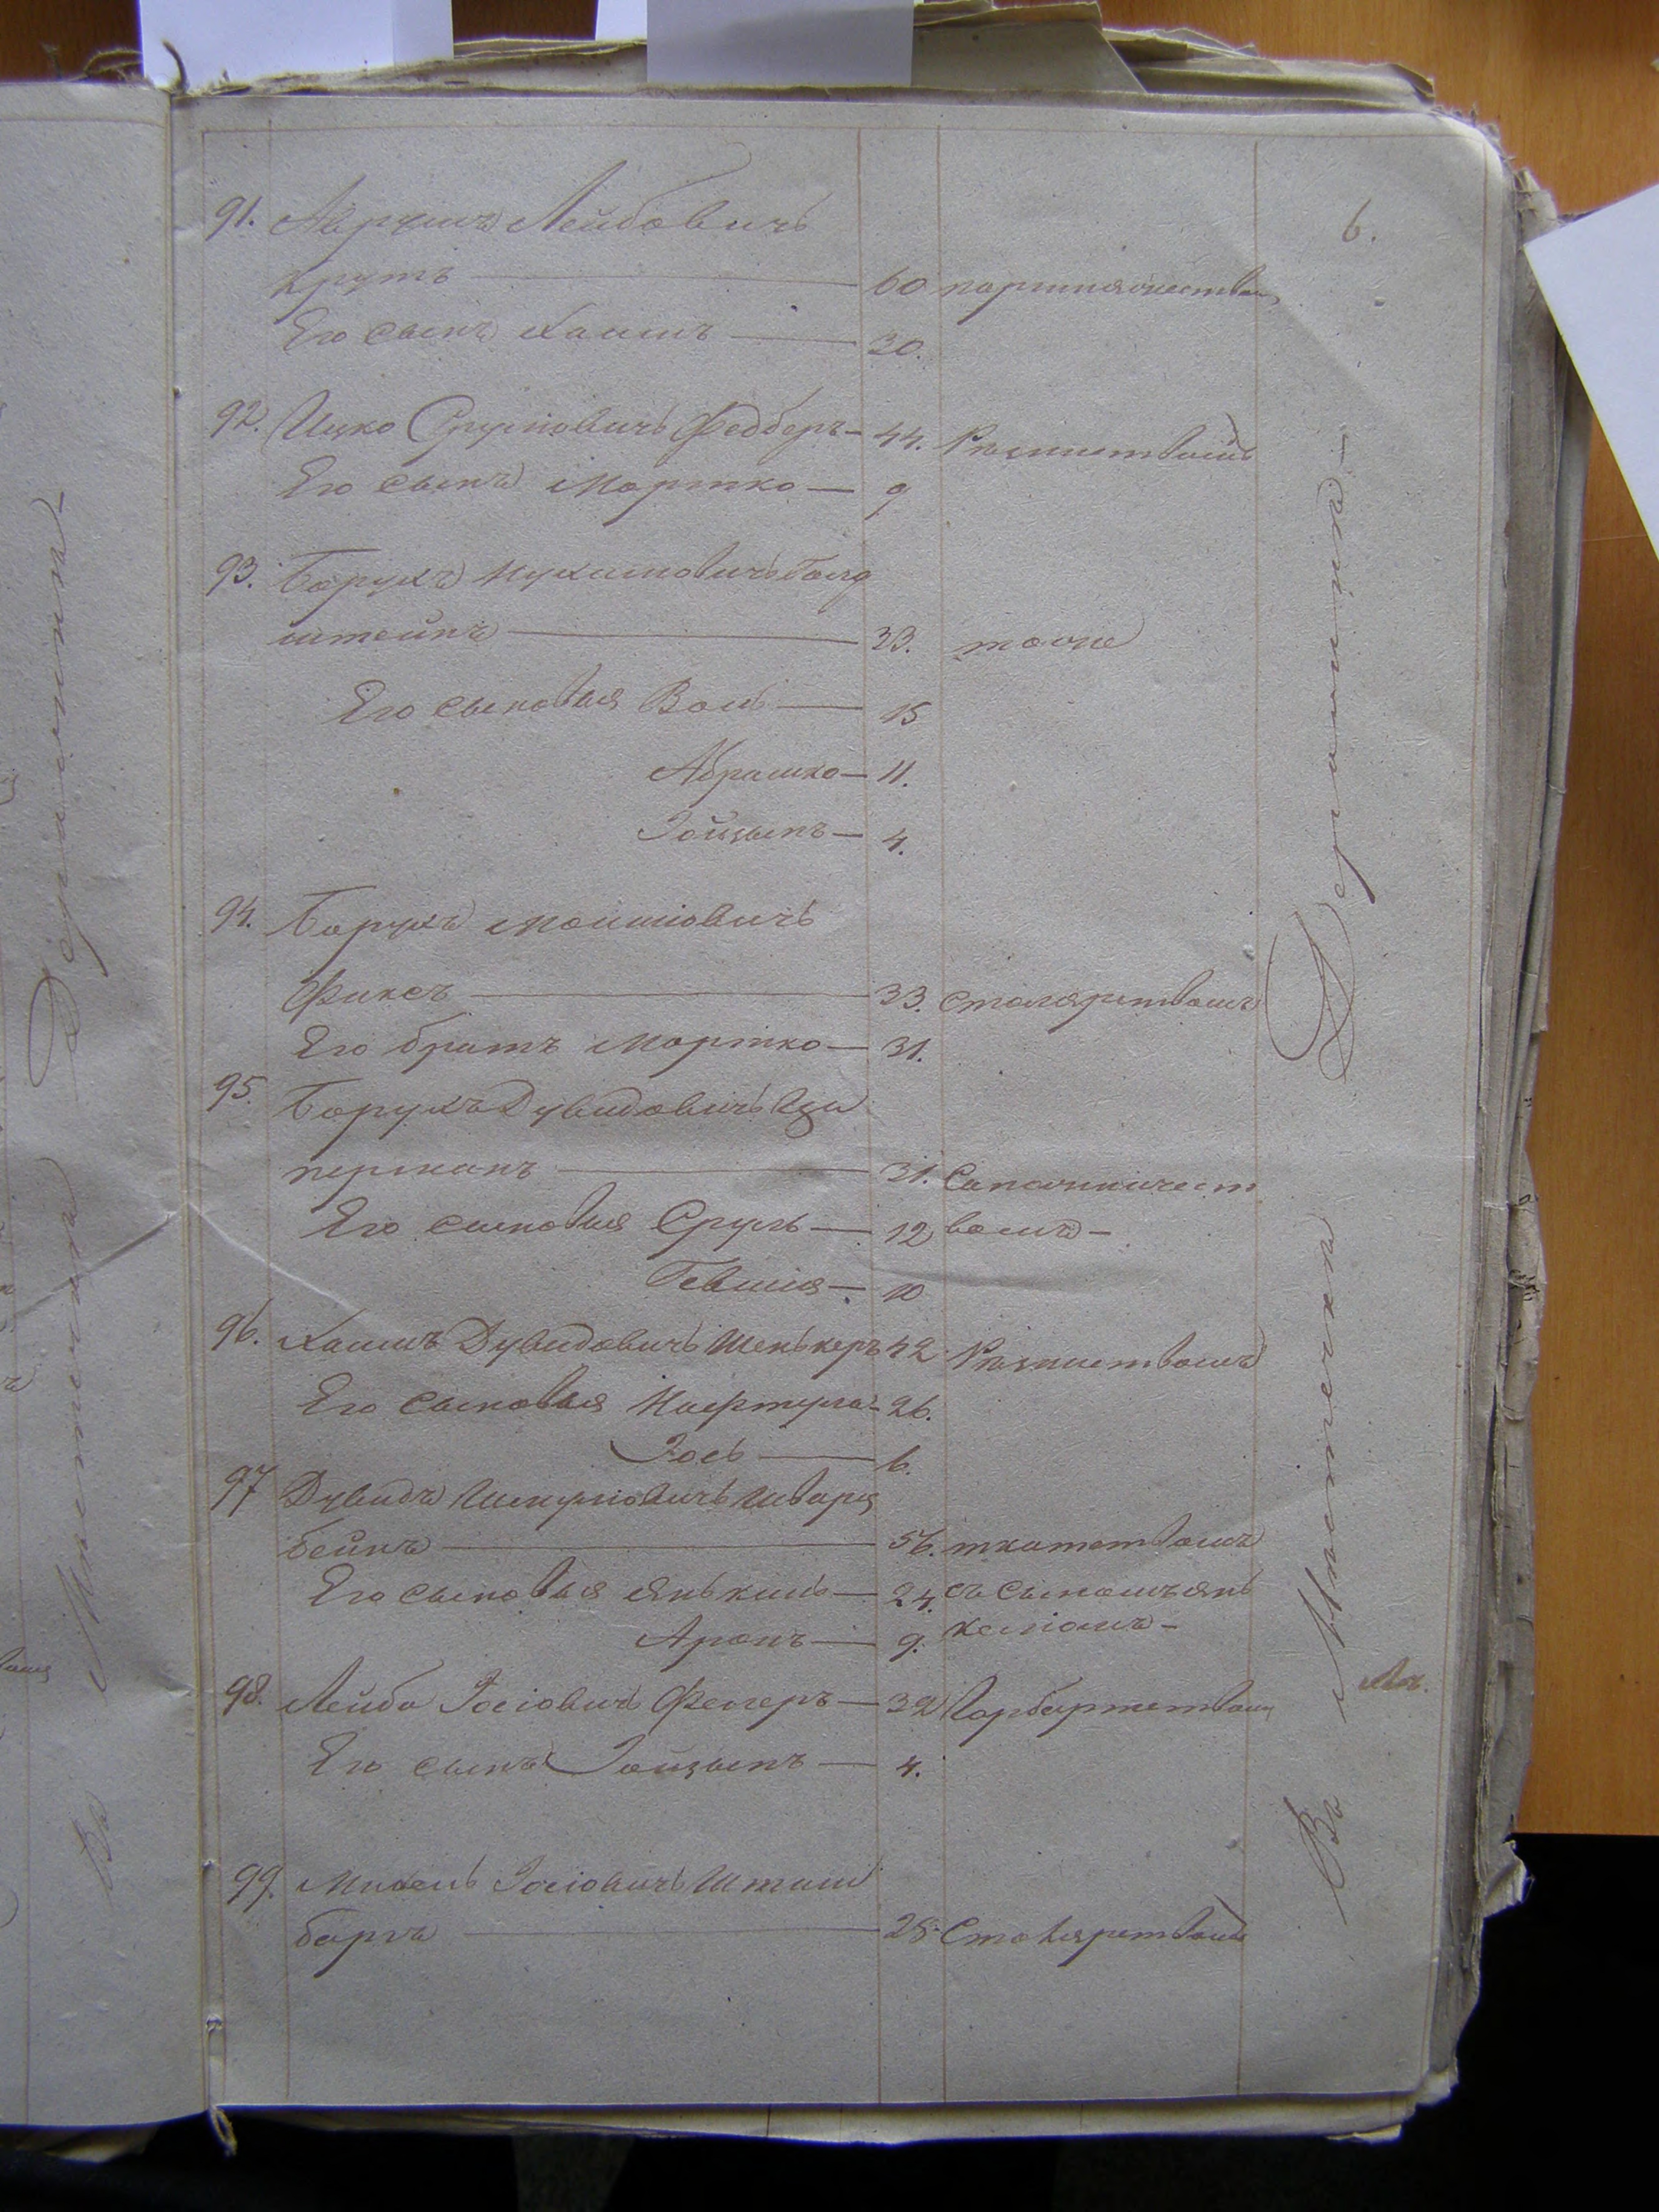 6.
91. Аврумъ Лейбовичъ
Крутъ — 60 портняжествомъ
Его сынъ Хаимъ — 30.
92. Ицко Сруліовичъ — 44. Рѣзничествомъ
Его сынъ Мортко — 9
93. Борухъ Нухимовичъ Голд
штейнъ — 33. тоже
Его сыновья Волъ — 15
Абрашко — 11.
Іойцыпъ — 4.
94. Борухъ Мошковичъ
Фиксъ — 33. Столярствомъ
Его братъ Мортко — 31.
95. Борухъ Дувидовичъ Ци
перманъ — 31. Сапожничест
Его сыновья Сруль — 12 вомъ —
Гевшія — 10
96. Хаимъ Дувидовичъ Шенькеръ 42 Рѣзничествомъ
Его сыновья Нафтула — 26.
Іось — 6.
97 Дувидъ Шмуліовичъ Шварц
бейнъ — 56. ткачествомъ
Его сыновья Янькель — 24. съ сыномъ Янь
Аронъ — 9. келіомъ —
98. Лейба Іосіовичъ Фелеръ — 32 Гарбарствомъ
Его сынъ Іойцыпъ — 4.
99. Михель Іосіовичъ Штаин
баргъ — 28. Столярствомъ
Въ Мѣстечкѣ